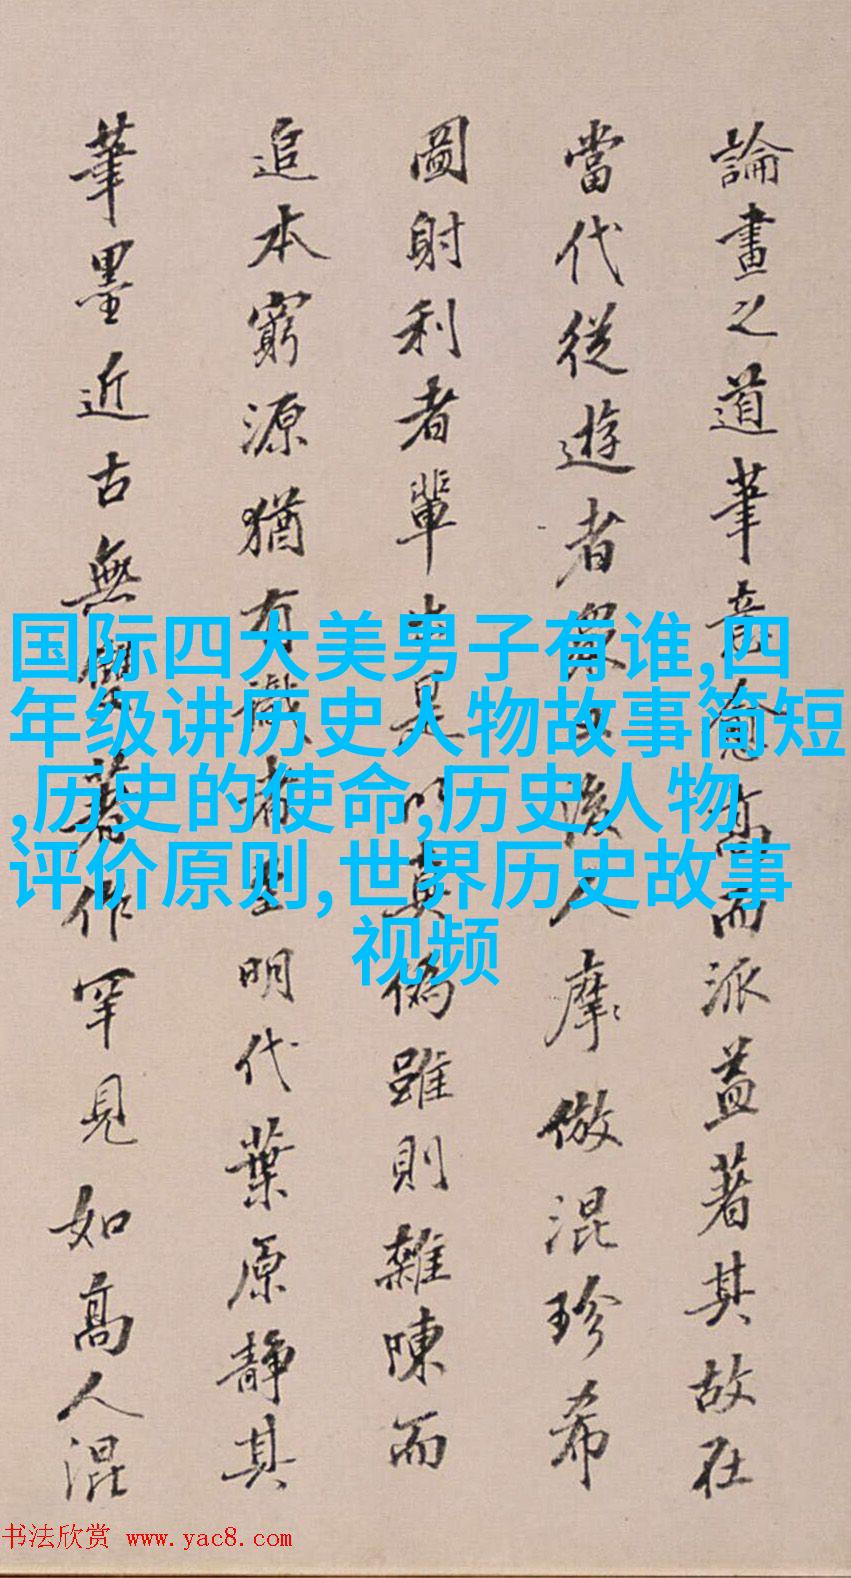 論畫之道筆意愈高而派益著其故在
當代從遊者眾又後人摩倣混珍希
圖射利者輩出是以真偽雖則雜陳而
追本窮源猶有識者至明代葉原靜其
筆墨近古無著作罕見如高人混
国际四大美男子有谁,四
年级讲历史人物故事简短
,历史的使命,历史人物
评价原则,世界历史故事
视频
书法欣赏 www.yac8.com